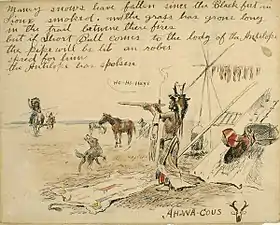 Maney snows have fallen sinc the Black feet an
Sioux smoked, and the grass has grone long
in the trail betwine there fires
but if Short Bull comes to the lodg of the Antilope
the pipe will be lit an robes
spred for him
the Antilope has spoken
HO-HO-HEYH
AH-WA-COUS